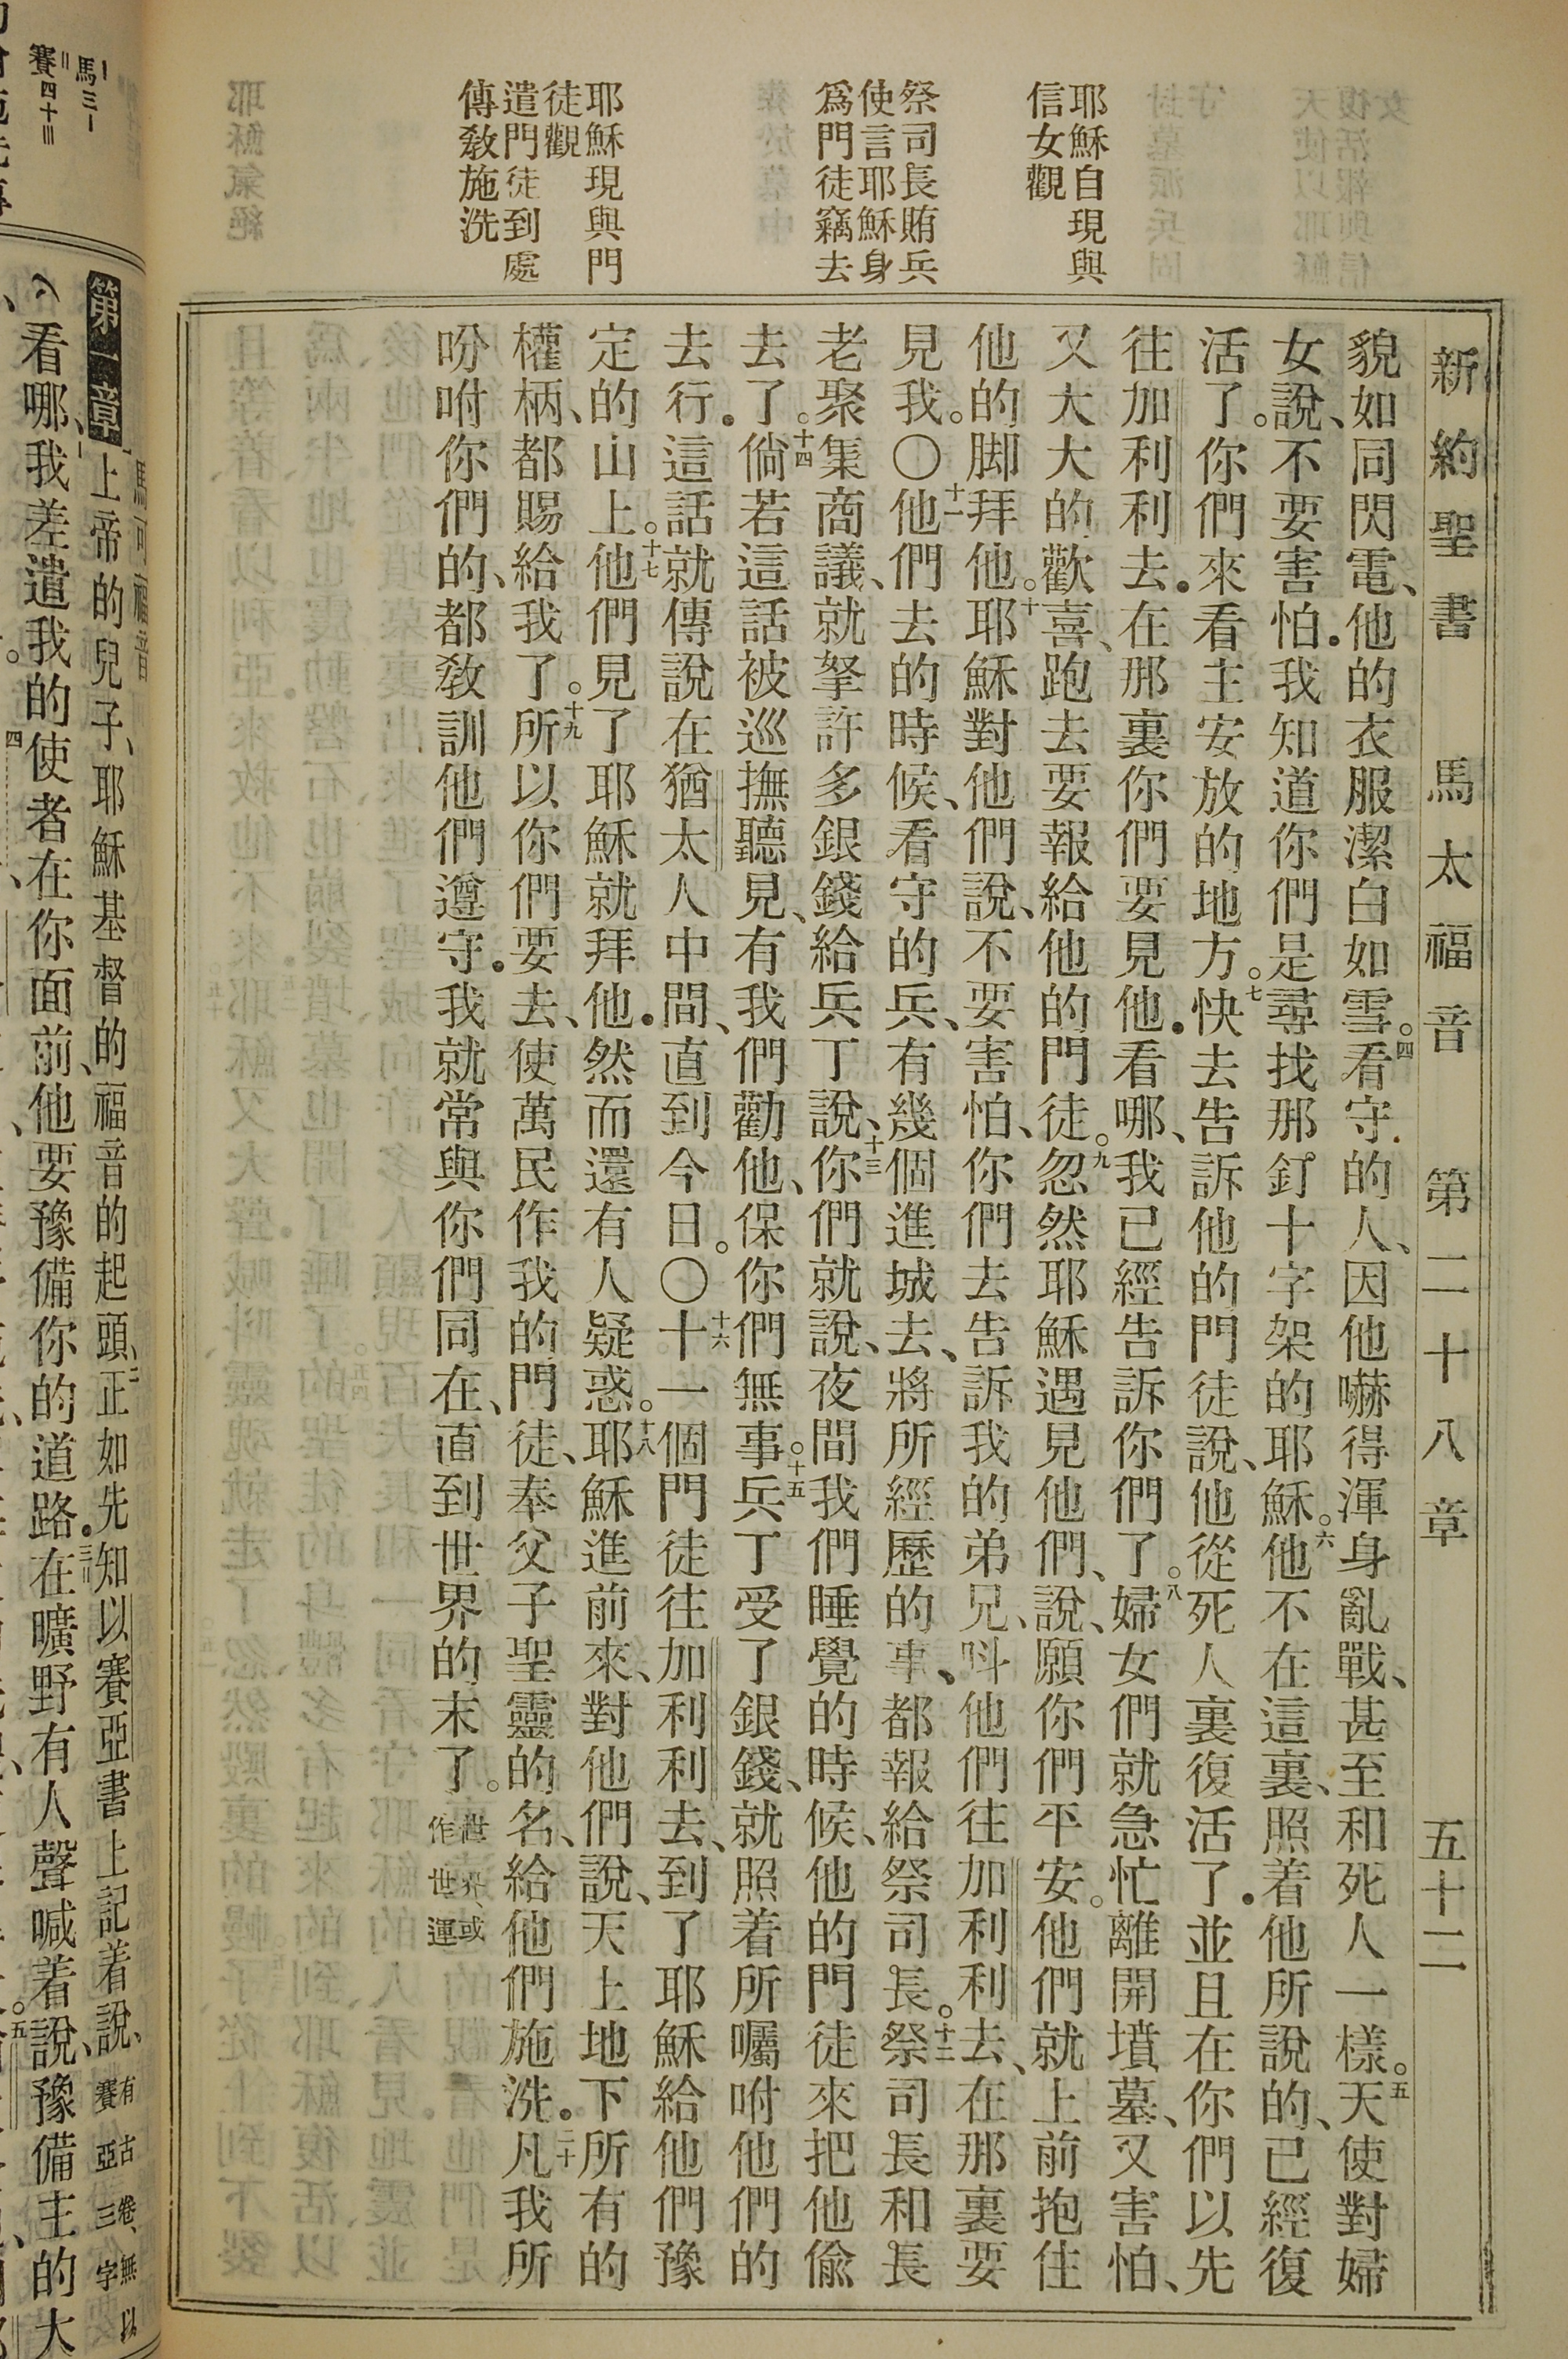 新約聖書 馬太福音 第二十八章 五十二
耶穌自現與
信女觀
祭司長賄兵
使言耶穌身
爲門徒竊去
耶穌現與門
徒觀
遣門徒到處
傳敎施洗
貌如同閃電、他的衣服潔白如雪。四看守的人、因他嚇得渾身亂戰、甚至和死人一樣。五天使對婦
女說、不要害怕．我知道你們是尋找那釘十字架的耶穌。六他不在這裏、照着他所說的、已經復
活了。你們來看主安放的地方。七快去告訴他的門徒說、他從死人裏復活了．並且在你們以先
往加利利去．在那裏你們要見他．看哪、我已經告訴你們了。八婦女們就急忙離開墳墓、又害怕、
又大大的歡喜、跑去要報給他的門徒。九忽然耶穌遇見他們、說、願你們平安。他們就上前抱住
他的脚拜他。十耶穌對他們說、不要害怕、你們去告訴我的弟兄、呌他們往加利利去、在那裏要
見我。〇十一他們去的時候、看守的兵、有幾個進城去、將所經歷的事、都報給祭司長。十二祭司長和長
老聚集商議、就拏許多銀錢給兵丁說、十三你們就說、夜間我們睡覺的時候、他的門徒來把他偸
去了。十四倘若這話被巡撫聽見、有我們勸他、保你們無事。十五兵丁受了銀錢、就照着所囑咐他們的
去行．這話就傳說在猶太人中間、直到今日。〇十六十一個門徒往加利利去、到了耶穌給他們豫
定的山上。十七他們見了耶穌就拜他．然而還有人疑惑。十八耶穌進前來、對他們說、天上地下所有的
權柄、都賜給我了。十九所以你們要去、使萬民作我的門徒、奉父子聖靈的名、給他們施洗．二十凡我所
吩咐你們的、都敎訓他們遵守．我就常與你們同在、直到世界的末了。世界、或作世運
馬三一
賽四十三
馬可福音
第一章 上帝的兒子、耶穌基督的福音的起頭、二正如先知以賽亞書上記着說、有古卷、無以賽亞三字
看哪、我差遣我的使者在你面前、他要豫備你的道路．三在曠野有人聲喊着說、豫備主的大